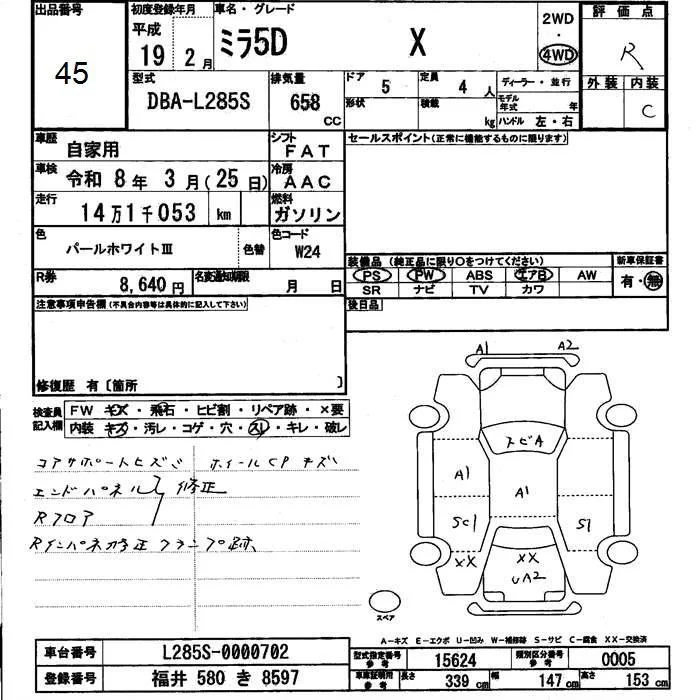 出品番号
45
初度登録年月
平成
19 2月
車名・グレード
ミラ5D X
2WD
・
4WD
評価点
R
外装 内装
C
型式
DBA-L285S
排気量
658
CC
ドア 5
形状
定員 4 人
積載 kg
ディーラー・並行
モデル年式 年
ハンドル 左・右
車歴 自家用
シフト
FAT
車検 令和 8年 3月(25日)
冷房
AAC
走行 14万1千053 km
燃料
ガソリン
色 パールホワイトⅢ 色替
色コード
W24
R券 8,640円
名変通知期限 月 日
セールスポイント(正常に機能するものに限ります)
装備品(純正品に限り○をつけてください)
PS PW ABS エアB AW
SR ナビ TV カワ
新車保証書
有・無
後日品
注意事項申告欄(不具合内容等は具体的に記入して下さい)
修復歴 有〔箇所 〕
検査員記入欄
FW キズ・飛石・ヒビ割・リペア跡・×要
内装 キズ・汚レ・コゲ・穴・スレ・キレ・破レ
コアサポートヒズミ ホイールCPキズ
エンドパネル 修正
Rフロア
Rインパネ修正 クランプ跡
A1 A2
トビA
A1
A1
SC1
S1
XX
XX
UA2
スペア
A-キズ E-エクボ U-凹み W-補修跡 S-サビ C-腐食 XX-交換済
車台番号 L285S-0000702
登録番号 福井 580 き 8597
型式指定番号 参考 15624
類別区分番号 参考 0005
車庫証明用 参考 長さ 339cm 幅 147cm 高さ 153cm